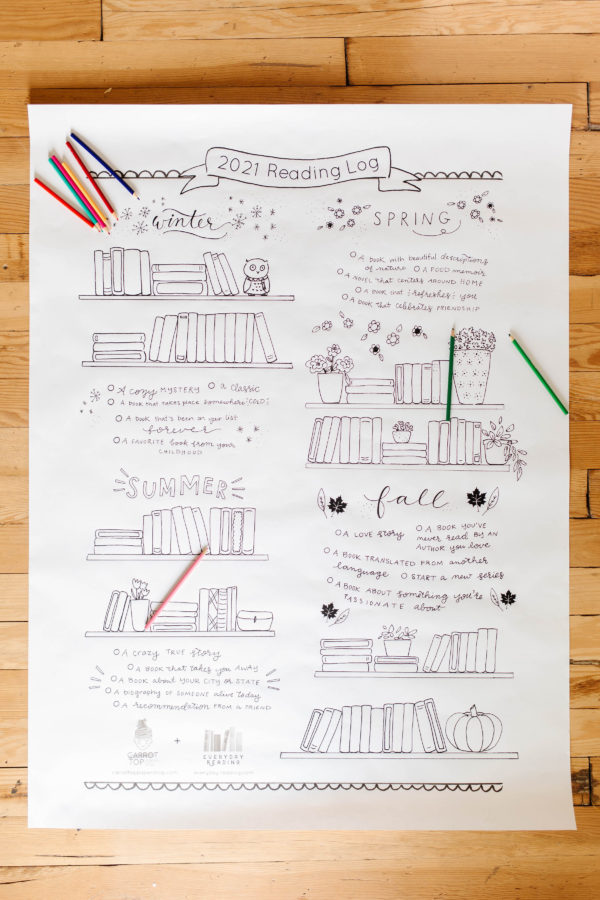 2021 Reading Log
winter
A cozy MYSTERY A classic
A book that takes place somewhere COLD
A book that's been on your list
forever
A FAVORITE book from your
CHILDHOOD
SPRING
A book with beautiful descriptions
of nature A FOOD memoir
A NOVEL THAT CENTERS AROUND HOME
A book that refreshes you
A book THAT CELEBRATES FRIENDSHIP
SUMMER
A crazy TRUE story
A BOOK THAT TAKES YOU AWAY
A BOOK ABOUT YOUR CITY OR STATE
A biography OF SOMEONE alive today
A recommendation FROM A FRIEND
fall
A LOVE story A BOOK YOU'VE
never READ BY AN
AUTHOR YOU LOVE
A BOOK TRANSLATED FROM another
language START A new series
A BOOK ABOUT something you're
PASSIONATE about
CARROT
TOP
+
EVERYDAY
READING